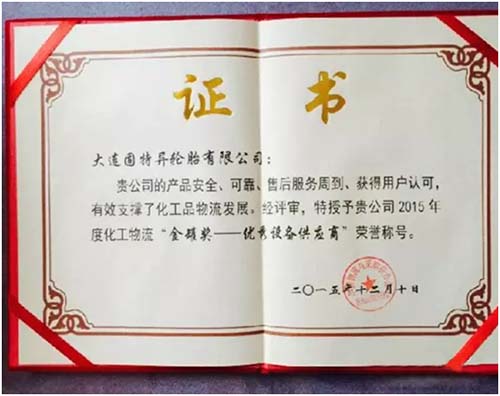 证书
大连固特异轮胎有限公司：
贵公司的产品安全、可靠、售后服务周到、获得用户认可，
有效支撑了化工品物流发展。经评审，特授予贵公司2015年
度化工物流“金罐奖——优秀设备供应商”荣誉称号。
二〇一五年十二月十日